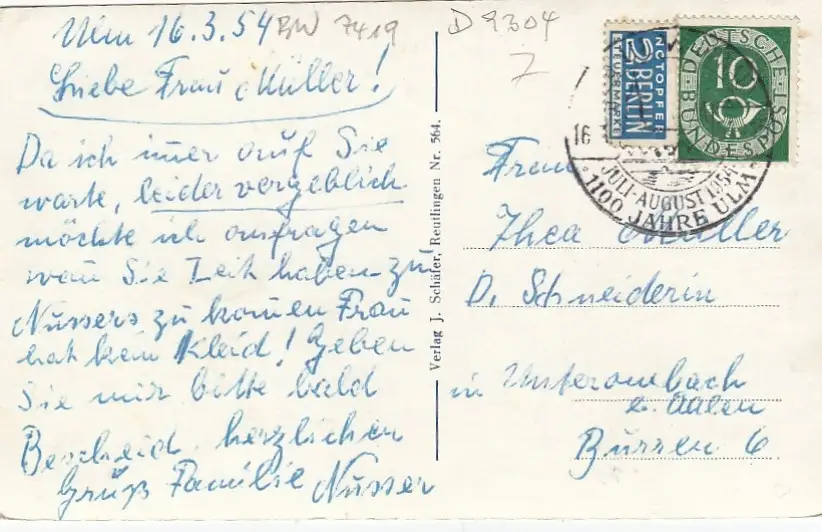 Ulm 16.3.54 BW 7419
Liebe Frau Müller!
Da ich imer auf Sie
warte, leider vergeblich
möchte ich anfragen
wan Sie Zeit haben zu
Nussers zu komen Frau
hat kein Kleid! Geben
Sie mir bitte bald
Bescheid, herzlichen
Gruß Familie Nusser
Verlag J. Schäfer, Reutlingen Nr. 564.
D 9304
Z
NOTOPFER
2 BERLIN
STEUERMARKE
DEUTSCHE
10
BUNDESPOST
16
JULI-AUGUST 1954
1100 JAHRE ULM
Frau
Thea Müller
D. Schneiderin
in Unterombach
b. Aalen
Burren 6